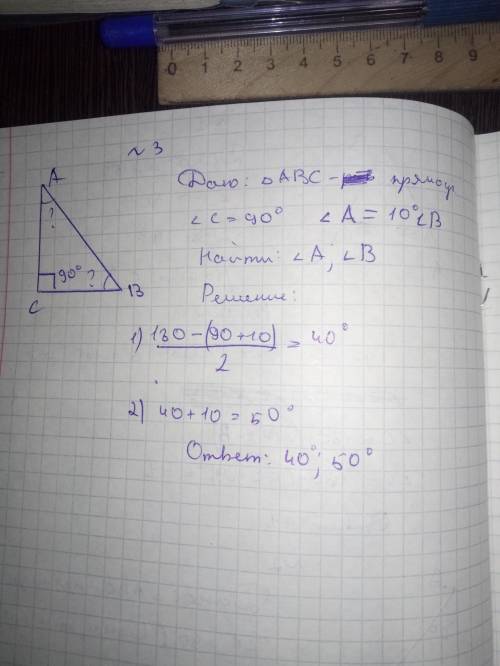 0 1 2 3 4 5 6 7 8 9
№ 3
A
?
90° ?
C
B
Дано: △ABC - прямоуг.
∠C = 90° ∠A = 10° ∠B
Найти: ∠A; ∠B
Решение:
1) 180 - (90 + 10)
2
= 40°
2) 40 + 10 = 50°
Ответ: 40°; 50°